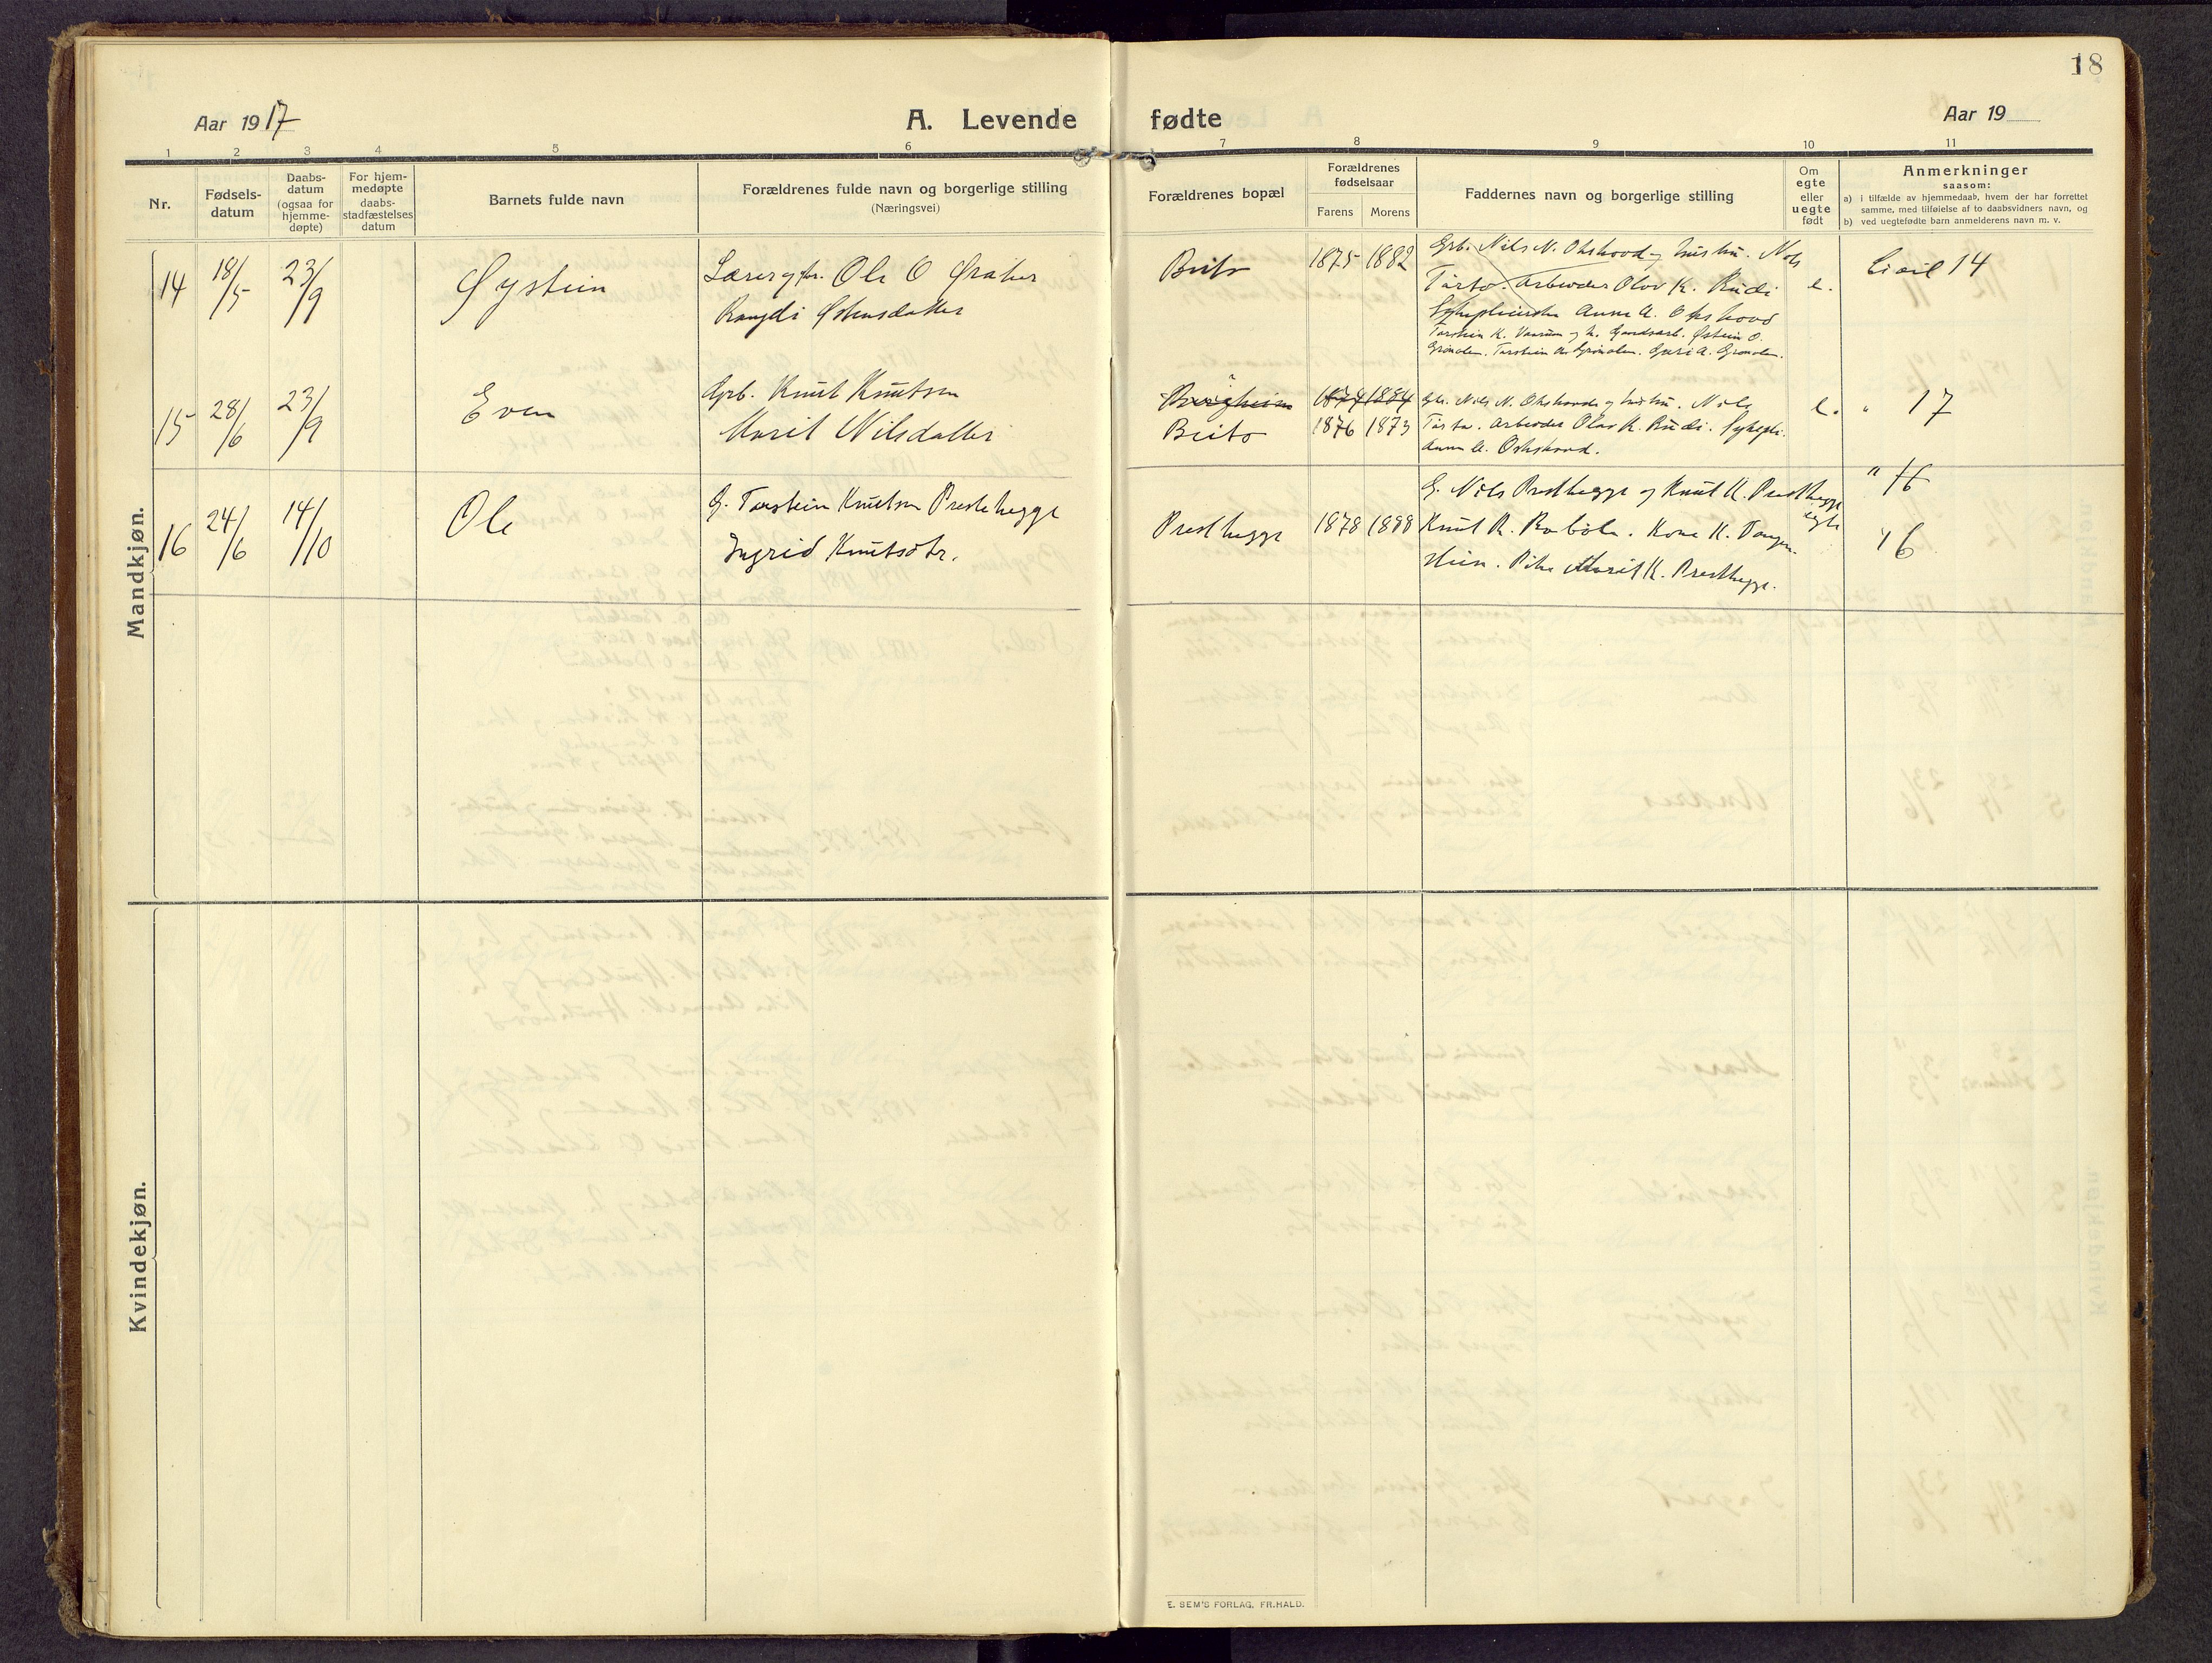 18
Aar 1917
A. Levende fødte
Aar 19
1 2 3 4 5 6 7 8 9 10 11
Nr.
Fødsels-
datum
Daabs-
datum
(ogsaa for
hjemme-
døpte)
For hjem-
medøpte
daabs-
stadfæstelses
datum
Barnets fulde navn
Forældrenes fulde navn og borgerlige stilling
(Næringsvei)
Forældrenes bopæl
Forældrenes
fødselsaar
Farens Morens
Faddernes navn og borgerlige stilling
Om
egte
eller
uegte
født
Anmerkninger
saasom:
a) i tilfælde av hjemmedaab, hvem der har forrettet
samme, med tilføielse af to daabsvidners navn, og
b) ved uegtefødte barn anmelderens navn m. v.
Mandkjøn.
14 18/5 23/9
Øystein
Lærer og Ole O
Rangdi Østensdatter
Beito
1875 1882
Grb. Nils N. Okshovd og hustru. Nils
Tarto. Arbeider Olav K. Rudi
Anne A. Okshovd
Torstein K. og h. Gaardsarb. Østein O.
Grønolen. Torstein A. Grønolen. Guri A. Grønolen.
e.
Civil 14
15 28/6 23/9
Even
Grb. Knut Knutsen
Marit Nilsdatter
Bergheim
Beito
1874 1884
1876 1873
Grb. Nils N. Okshovd og hustru. Nils
Tarto. Arbeider Olav K. Rudi. Sykepl.
Anne A. Okshovd.
e.
" 17
16 24/6 14/10
Ole
G. Torstein Knutsen Prestehegge
Ingrid Knutsdtr.
Presthegge
1878 1888
G. Nils Presthegge og Knut K. Presthegge
Knut R. Robøle. Kona K. Tangen-
Stein. Pike Marit K. Presthegge.
egte
" 16
" 6
Kvindekjøn.
E. SEM'S FORLAG, FR.HALD.